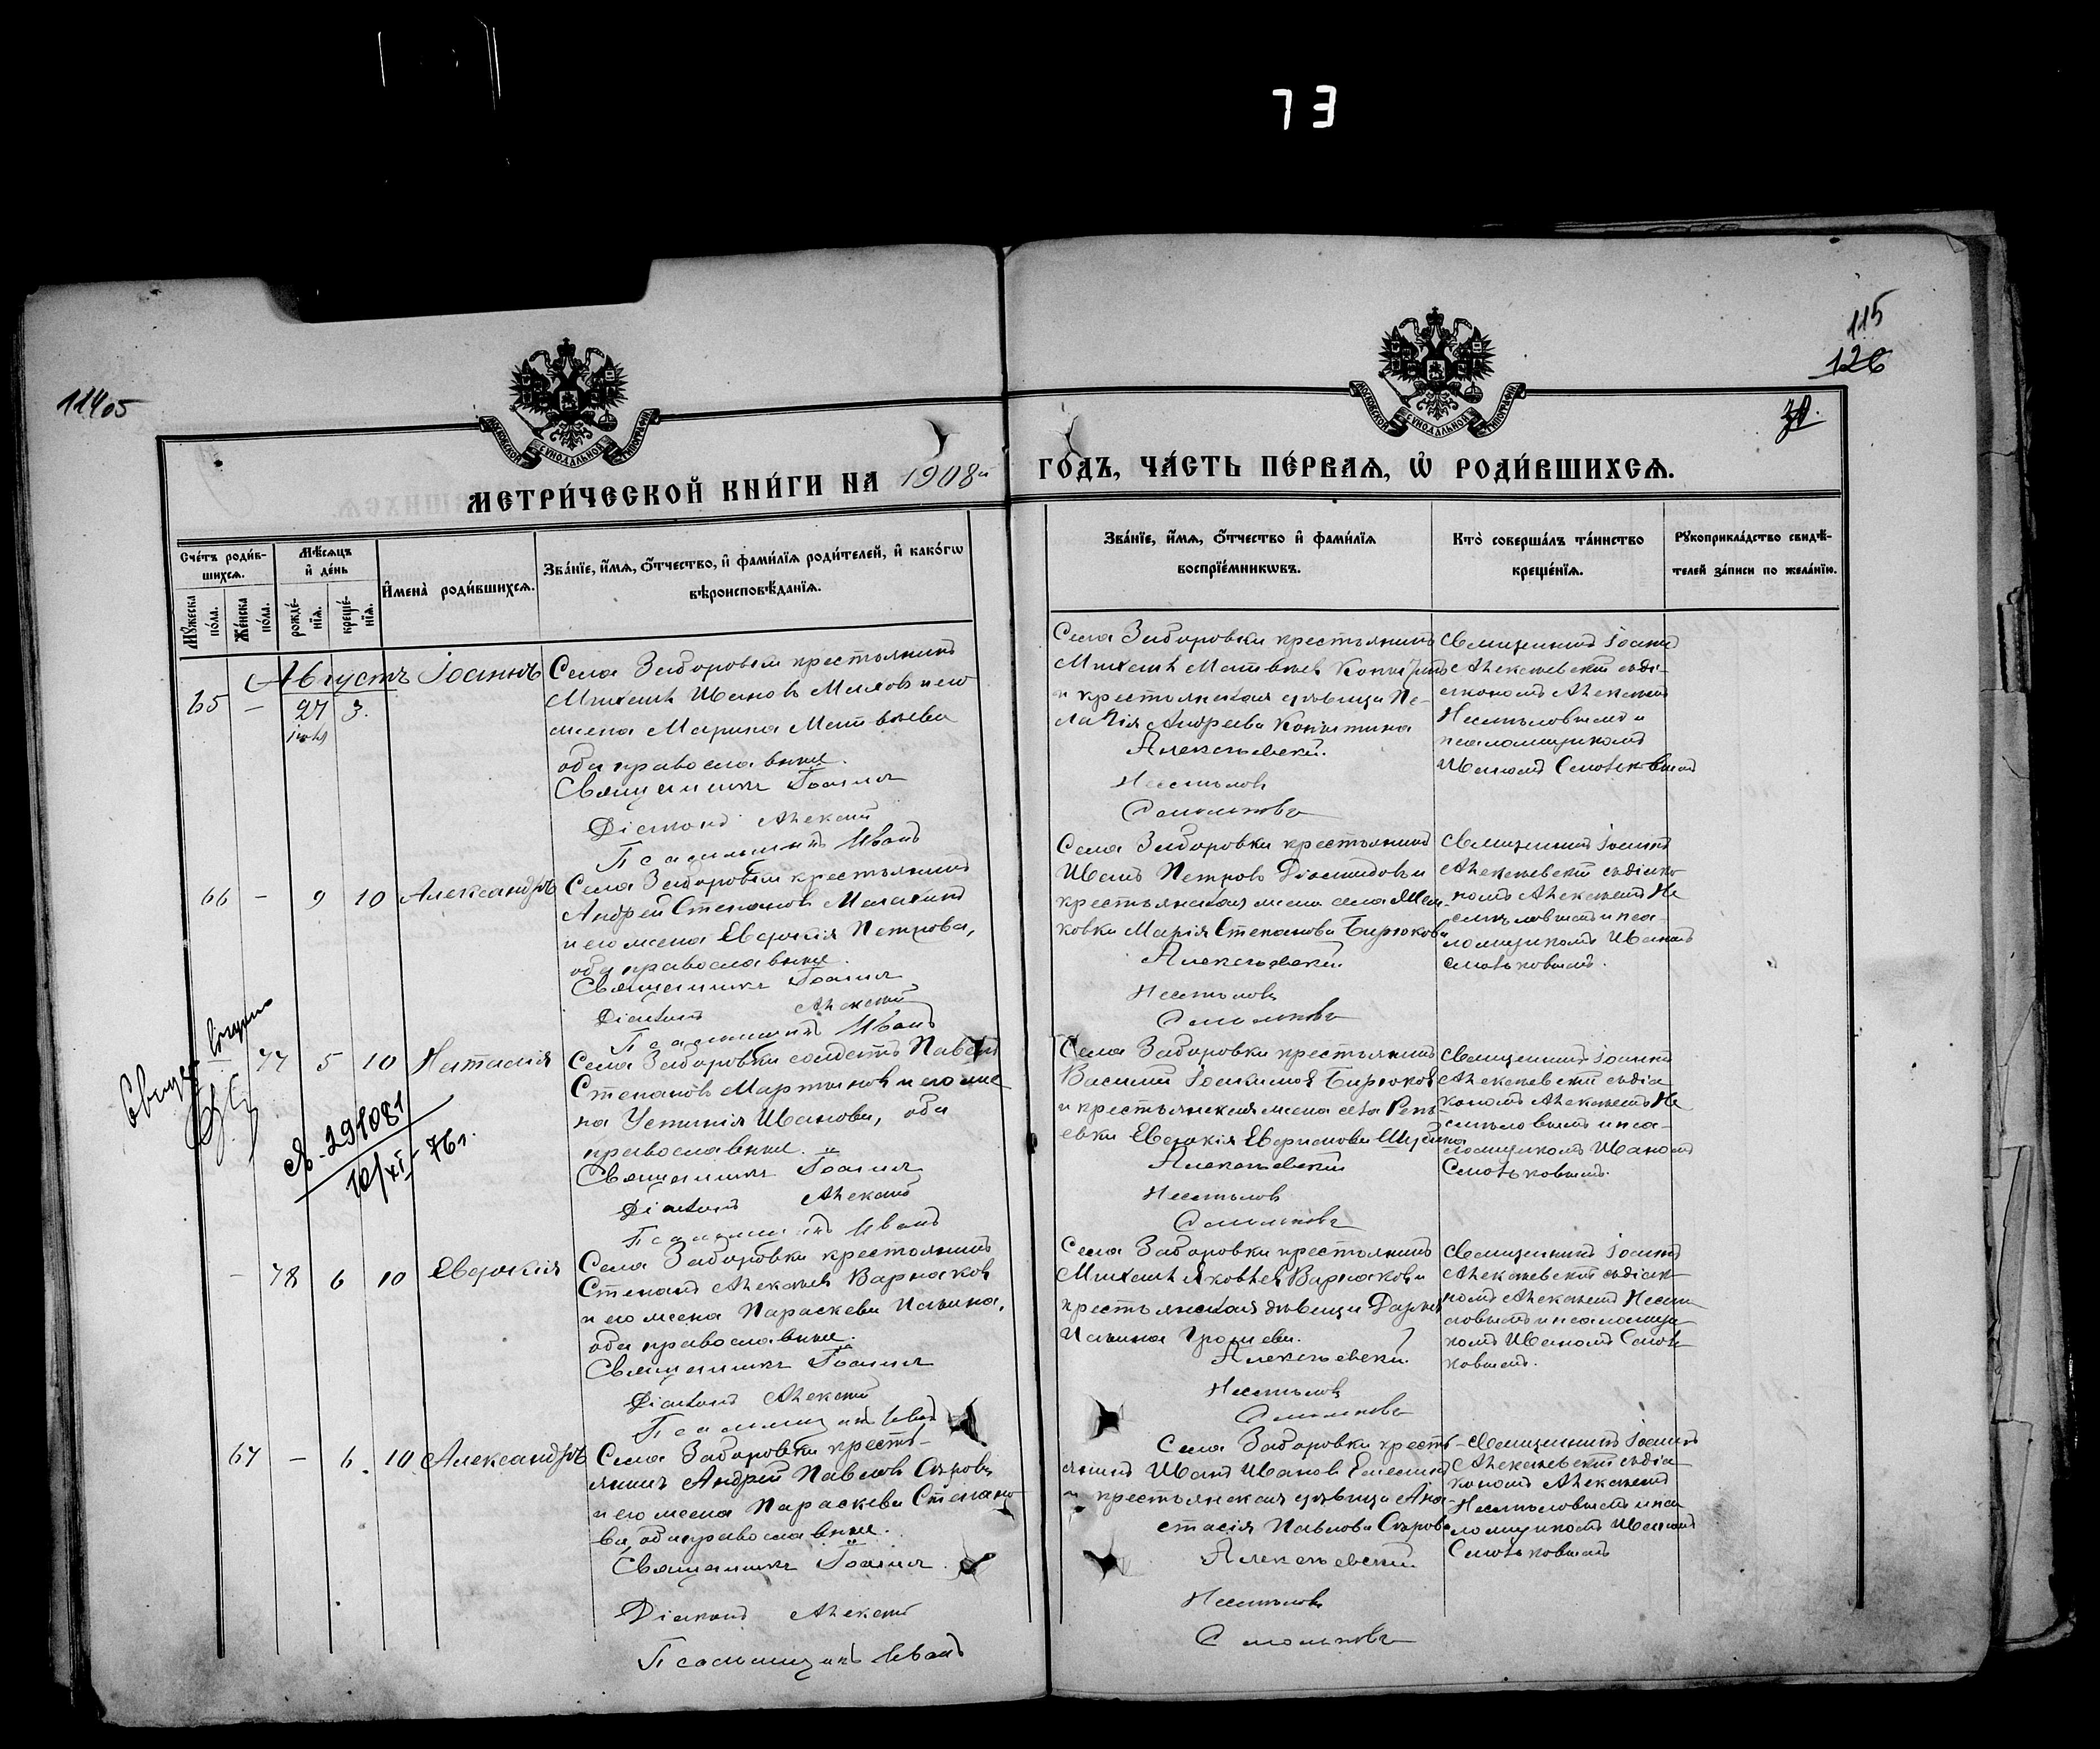 73
115
126
114об
31.
МОСКОВСКОЙ СѴНОДАЛЬНОЙ ТИПОГРАФІИ
МОСКОВСКОЙ СѴНОДАЛЬНОЙ ТИПОГРАФІИ
МЕТРИ́ЧЕСКОЙ КНИ́ГИ НА 1908й ГО́ДЪ, ЧА́СТЬ ПЕ́РВАѦ, Ѡ҆ РОДИ́ВШИХСѦ.
Сче́тъ роди́в-
шихсѧ.
Мꙋ́жеска
по́ла.
Же́нска
по́ла.
Мѣ́сѧцъ
и҆ де́нь
рожде́-
нїѧ.
креще́-
нїѧ.
И҆мена̀ роди́вшихсѧ.
Зва́нїе, и҆́мѧ, ѻ҆́тчество, и҆ фами́лїѧ роди́телей, и҆ како́гѡ
вѣроисповѣ́данїѧ.
Зва́нїе, и҆́мѧ, ѻ҆́тчество и҆ фами́лїѧ
воспрїе́мникѡвъ.
Кто̀ соверша́лъ та́инство
креще́нїѧ.
Рꙋкоприкла́дство свидѣ́-
телей за́писи по жела́нїю.
Августъ
65 - 27 3.
іюля
Іоаннъ
Села Заборовки крестьянинъ
Михаилъ Ивановъ Маловъ и его
жена Марина Матвѣева
оба православные.
Священникъ Іоаннъ
Діаконъ Алексѣй
Псаломщикъ Иванъ
Села Заборовки крестьянинъ
Михаилъ Матвѣевъ
и крестьянская дѣвица Пе-
лагія Андреева Копытина
Алексѣевскій.
Несмѣловъ
Смольковъ
Священникъ Іоаннъ
Алексѣевскій съ діа-
кономъ Алексѣемъ
Несмѣловымъ и
псаломщикомъ
Иваномъ Смольковымъ
66 - 9 10 Александръ
Села Заборовки крестьянинъ
Андрей Степановъ Малахинъ
и его жена Евдокія Петрова,
оба православные.
Священникъ Іоаннъ
Діаконъ Алексѣй
Псаломщикъ Иванъ
Села Заборовки крестьянинъ
Иванъ Петровъ Діомидовъ и
крестьянская жена села
ковки Марія Степанова Бирюкова
Алексѣевскій
Несмѣловъ
Смольковъ
Священникъ Іоаннъ
Алексѣевскій съ діако-
номъ Алексѣемъ Не
смѣловымъ и пса-
ломщикомъ Иваномъ
Смольковымъ.
77 5 10 Наталія
Села Заборовки солдатъ Павелъ
Степановъ Мартыновъ и его же
на Устинія Иванова, оба
православные.
Священникъ Іоаннъ
Діаконъ Алексѣй
Псаломщикъ Иванъ
Села Заборовки крестьянинъ
Василій Іоакимовъ Бирюковъ
и крестьянская жена села Репь-
евки Евдокія
Алексѣевскій
Несмѣловъ
Смольковъ
Священникъ Іоаннъ
Алексѣевскій съ діа
кономъ Алексѣемъ Не
смѣловымъ и пса-
ломщикомъ Иваномъ
Смольковымъ.
291081
10/XI-76г.
- 78 6 10 Евдокія
Села Заборовки крестьянинъ
Степанъ Алексѣевъ Варлаковъ
и его жена Параскева Ильина,
оба православные.
Священникъ Іоаннъ
Діаконъ Алексѣй
Псаломщикъ Иванъ
Села Заборовки крестьянинъ
Михаилъ Яковлевъ Варлаковъ и
крестьянская дѣвица Дарья
Ильина
Алексѣевскій.
Несмѣловъ
Смольковъ
Священникъ Іоаннъ
Алексѣевскій съ діак-
номъ Алексѣемъ Несмѣ
ловымъ и псаломщи
комъ Иваномъ Смоль
ковымъ.
67 - 6. 10 Александръ
Села Заборовки кресть-
янинъ Андрей Павловъ Сѣровъ
и его жена Параскева Степано
ва, оба православные.
Священникъ Іоаннъ.
Діаконъ Алексѣй
Псаломщикъ Иванъ
Села Заборовки кресть-
янинъ Иванъ Ивановъ
и крестьянская дѣвица Ана-
стасія Павлова Сѣрова
Алексѣевскій
Несмѣловъ
Смольковъ
Священникъ Іоаннъ
Алексѣевскій съ діа
кономъ Алексѣемъ
Несмѣловымъ и пса
ломщикомъ Иваномъ
Смольковымъ